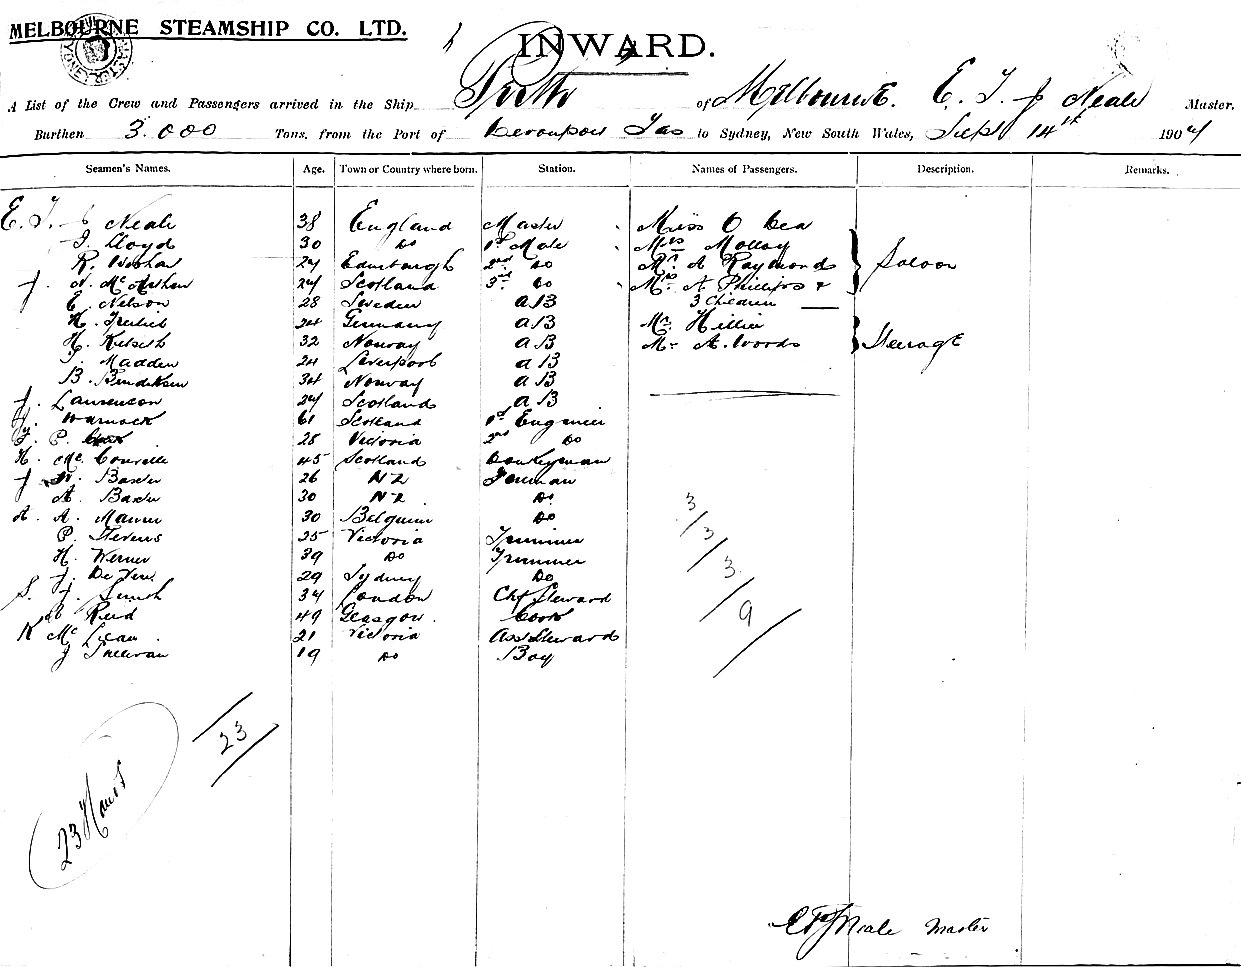 MELBOURNE STEAMSHIP CO. LTD.
INWARD.
A List of the Crew and Passengers arrived in the Ship Perth of Melbourne. E. T. J Neale Master.
Burthen 3.000 Tons, from the Port of Devonport Tas to Sydney, New South Wales, Sept 14th 1904
Seamen's Names. Age. Town or Country where born. Station. Names of Passengers. Description. Remarks.
E. T. J Neale 38 England Master Miss O Dea
Lloyd 30 Do 1st Mate Mrs Molloy
R. 24 Edinburgh 2nd Do Mr A Raymond Saloon
J. 24 Scotland 3rd Do Mrs A Phillips &
E. Nelson 28 Sweden AB 3 Children
H. 24 Germany AB Mr Hillier
H. 32 Norway AB Mr A. Woods Steerage
J. Madden 24 Liverpool AB
B. Bendiksen 34 Norway AB
J. Laurenson 24 Scotland AB
J. Warnock 61 Scotland 1st Engineer
P. 28 Victoria 2nd Do
H. Mc 45 Scotland Donkeyman
J Baxter 26 NZ Fireman
A. Baxter 30 NZ Do
A. A. 30 Belguim Do
P. Stevens 25 Victoria Trimmer
H. Werner 39 Do Trimmer
J. De 29 Sydney Do
S. J. 34 London Chf Steward
Reid 49 Glasgow. Cook
K Mc Lean 21 Victoria Ass Steward
J Sullivan 19 Do Boy
3/3/3/9
23
23 Hands
E T J Neale Master